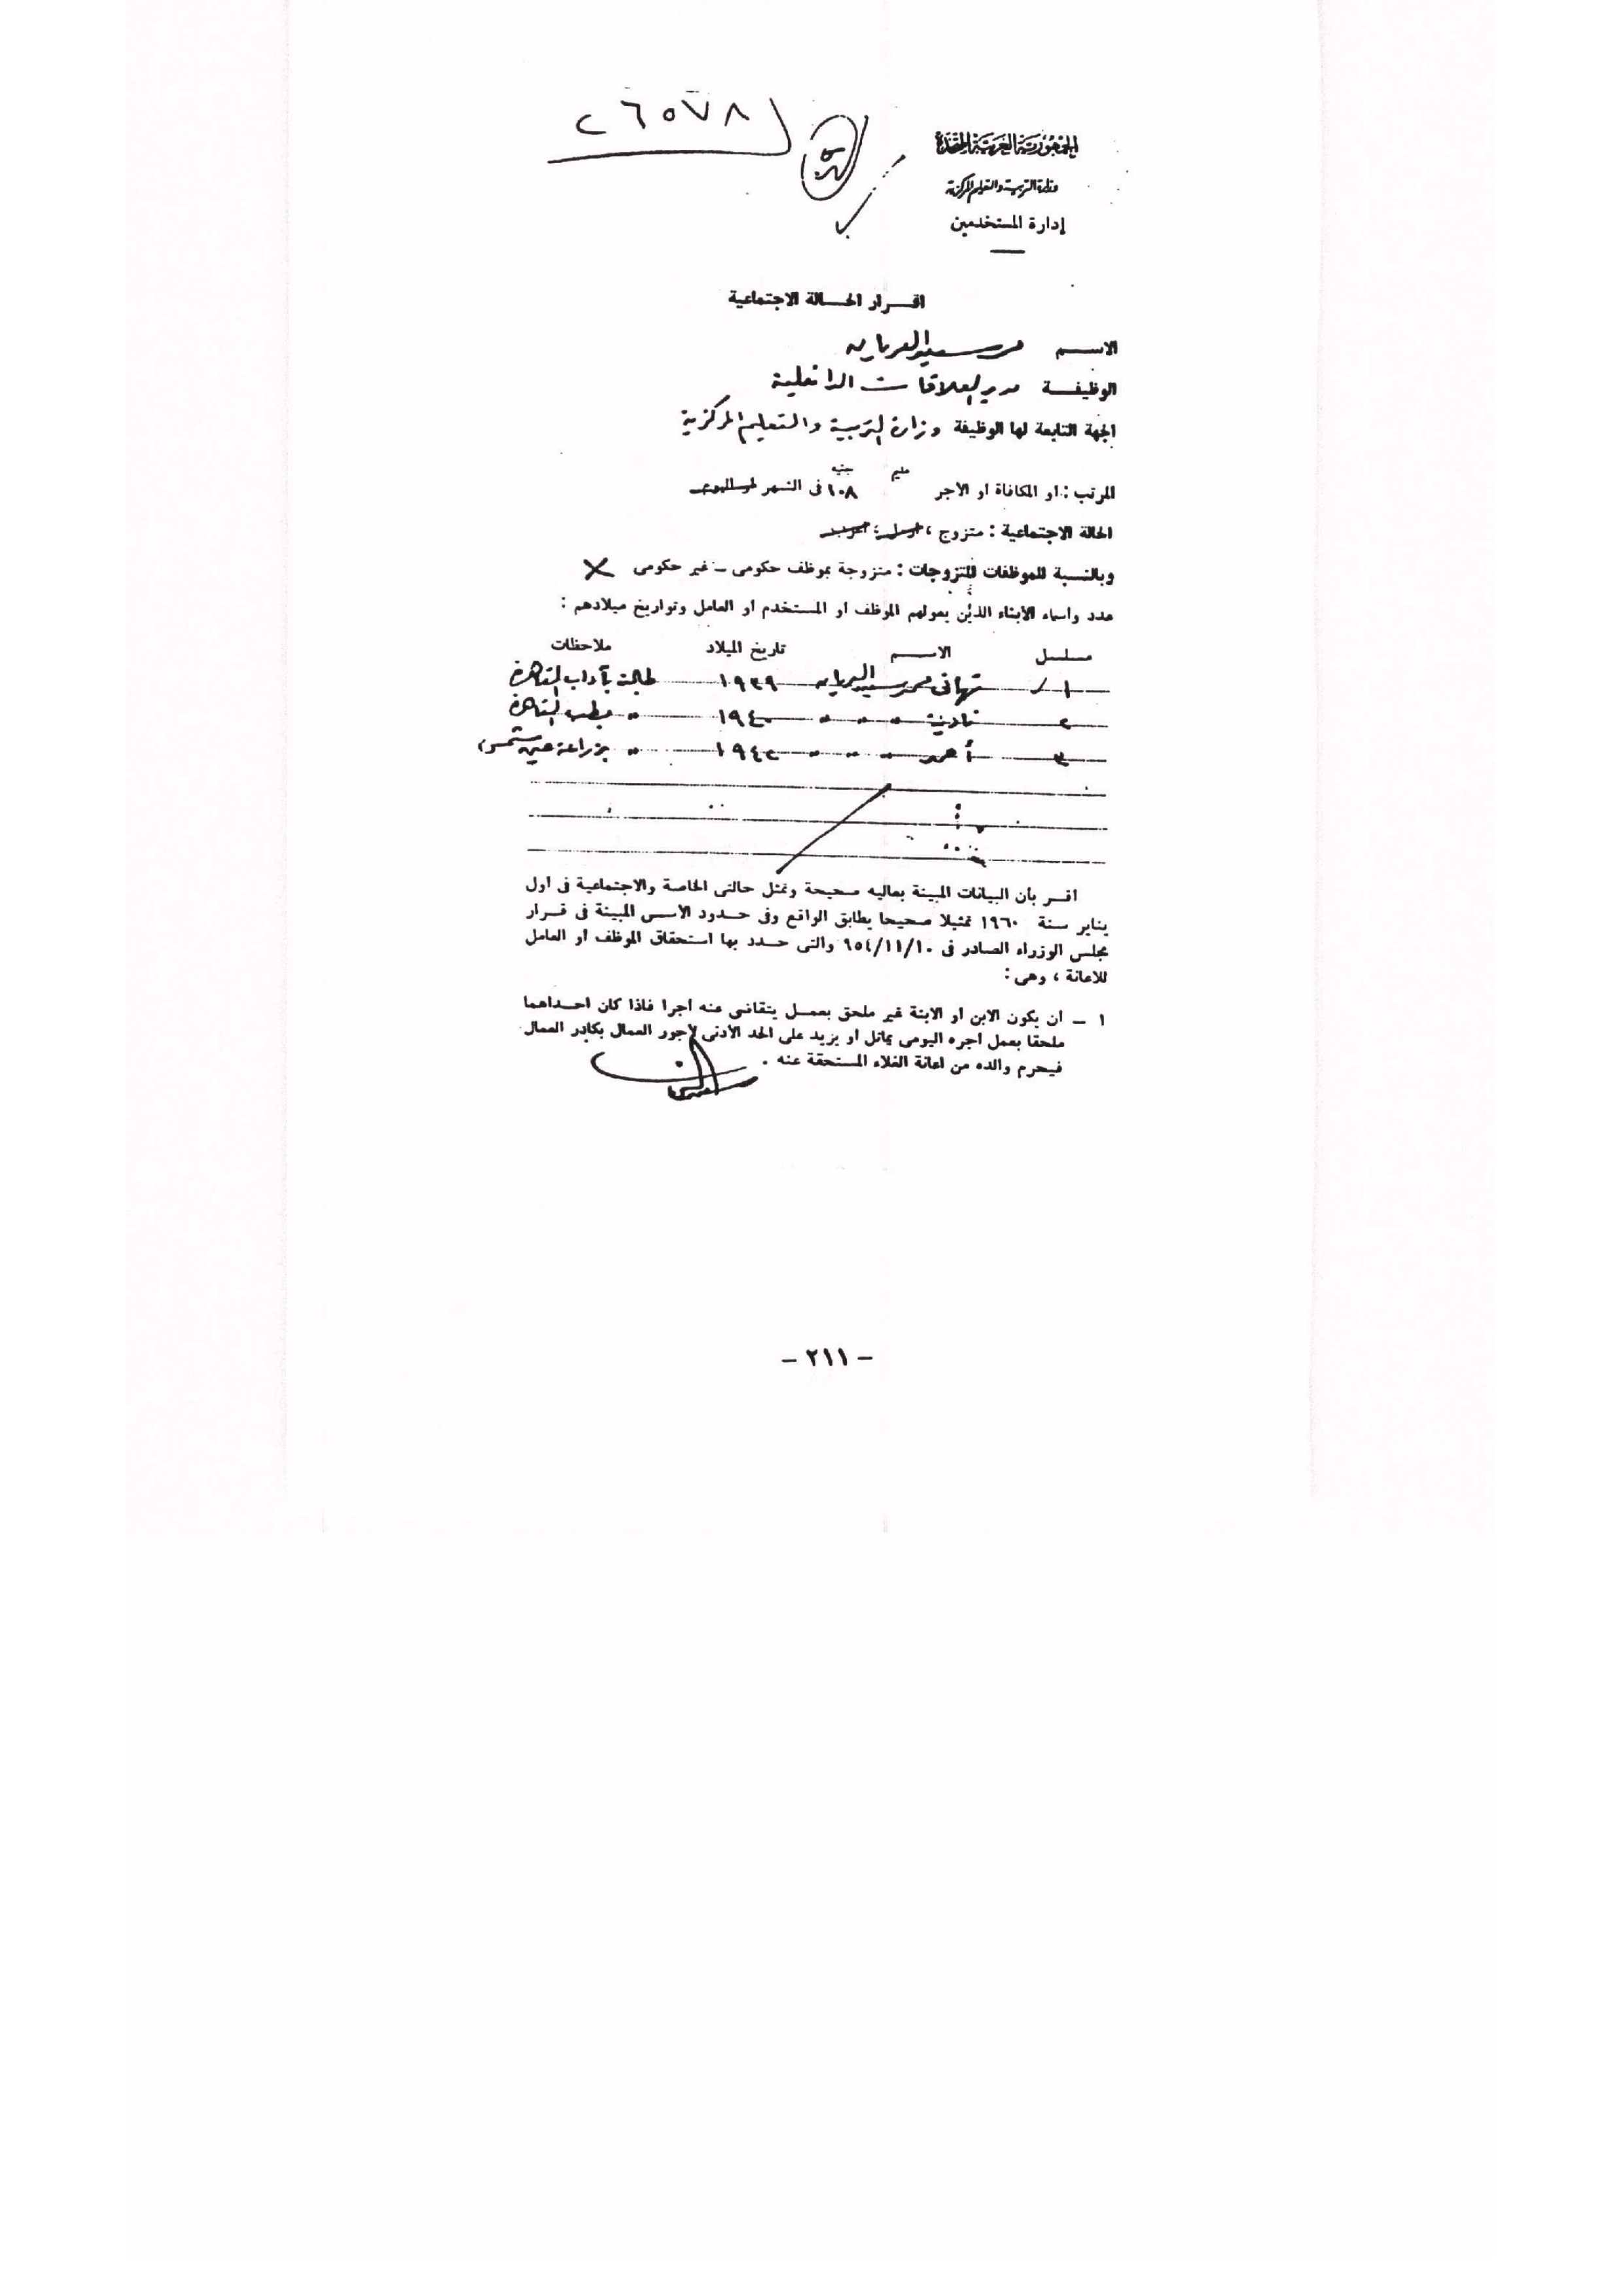 ٢٦٥٧٨
الجمهورية العربية المتحدة
وزارة التربية والتعليم المركزية
إدارة المستخدمين
اقرار الحالة الاجتماعية
الاسم محمد سعيد العريان
الوظيفة مدير العلاقات الداخلية
الجهة التابعة لها الوظيفة وزارة التربية والتعليم المركزية
مليم جنيه
المرتب : او المكافاة او الاجر ١٠٨ فى الشهر او اليوم
الحالة الاجتماعية : متزوج ، ارمل ، اعزب
وبالنسبة للموظفات المتزوجات : متزوجة بموظف حكومى – غير حكومى ×
عدد وأسماء الأبناء الذين يعولهم الموظف او المستخدم او العامل وتواريخ ميلادهم :
مسلسل الاسم تاريخ الميلاد ملاحظات
١ تهانى محمد سعيد العريان ١٩٣٩ طالبة بآداب القاهرة
٢ نادية " " " ١٩٤٠ " بطب القاهرة
٣ أحمد " " " ١٩٤٢ " بزراعة عين شمس
اقر بأن البيانات المبينة بعاليه صحيحة وتمثل حالتى الخاصة والاجتماعية فى اول
يناير سنة ١٩٦٠ تمثيلا صحيحا يطابق الواقع وفى حدود الأسس المبينة فى قرار
مجلس الوزراء الصادر فى ٩٥٤/١١/١٠ والتى حدد بها استحقاق الموظف او العامل
للاعانة ، وهى :
١ – ان يكون الابن او الابنة غير ملحق بعمل يتقاضى عنه اجرا فاذا كان احداهما
ملحقا بعمل أجره اليومى يماثل او يزيد على الحد الأدنى لاجور العمال بكادر العمال
فيحرم والده من اعانة الغلاء المستحقة عنه .
– ٢١١ –